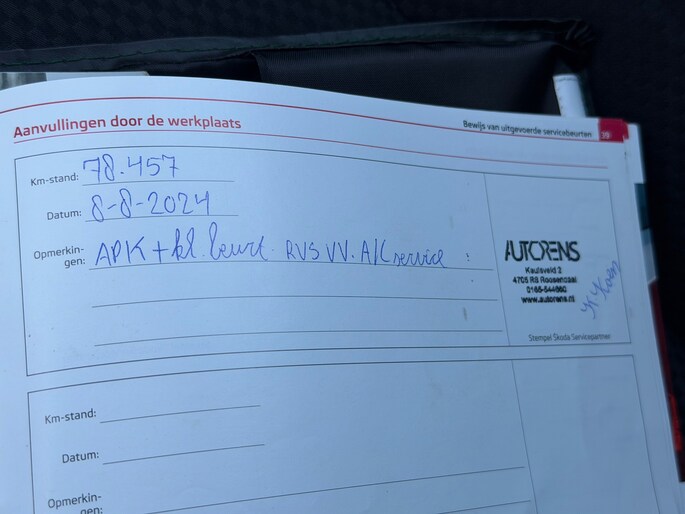 Aanvullingen door de werkplaats
Bewijs van uitgevoerde servicebeurten 39
Km-stand: 78.457
Datum: 8-8-2024
Opmerkin-
gen: APK + kl. beurt. RVS VV. A/C service
AUTORENS
Keulsveld 2
4705 RS Roosendaal
0165-544860
www.autorens.nl
Stempel Skoda Servicepartner
Km-stand:
Datum:
Opmerkin-
gen: